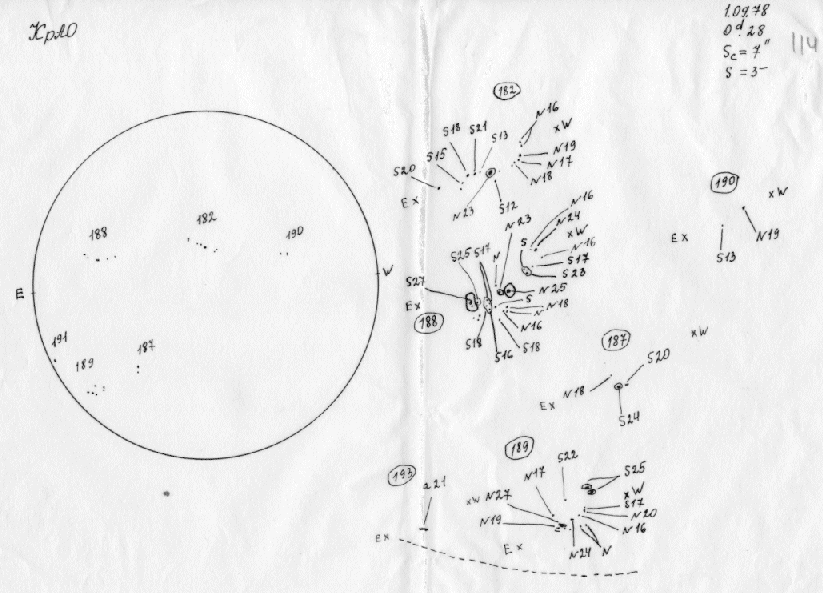 КрАО
1.09.78
0d.28
Sc = 7"
S = 3-
114
182
S18 S21 S13 N16
xW
S20 S15 N19
N17
N18
Ex
N23 S12
190
xW
Ex
S13 N19
188 182 190
E W
191
189 187
N16
N23 N24
xW
S25 S17 N S N16
S17
S23
S27 N25
Ex S N18
N
188 N16
S18 S16 S18
187
xW
S20
Ex N18
S24
193
a21
Ex
189
S22
N17 S25
xW N27 xW
S17
N19 N20
N16
Ex N24 N